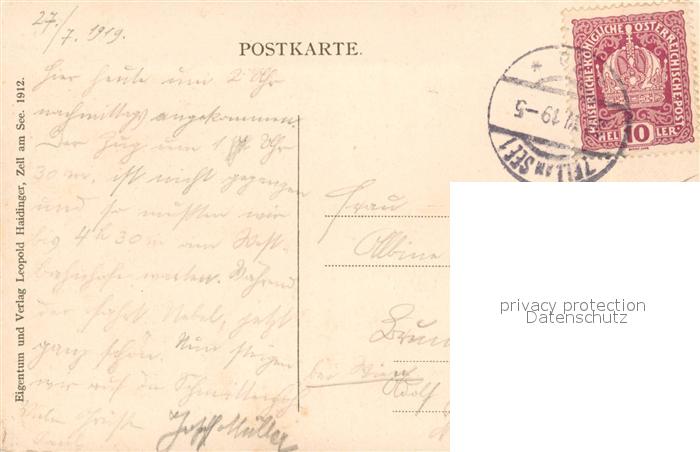 27./7. 1919.
POSTKARTE.
Hier heute um 2 Uhr
nachmittags angekommen.
Der Zug um 1 Uhr
30 m. ist nicht gegangen
und so mußten wir
bis 4 h 30 m am West-
bahnhofe warten. Während
der Fahrt Nebel, jetzt
ganz schön. Nun steigen
wir auf die Schmittenhöhe
Viele Grüße
Müller
Eigentum und Verlag Leopold Haidinger, Zell am See. 1912.
KAISERLICHE KÖNIGLICHE ÖSTERREICHISCHE POST
HEL 10 LER
19-5
ZELL AM SEE 1
Frau
Albine
Brun
bei Wien
Adolf
privacy protection
Datenschutz